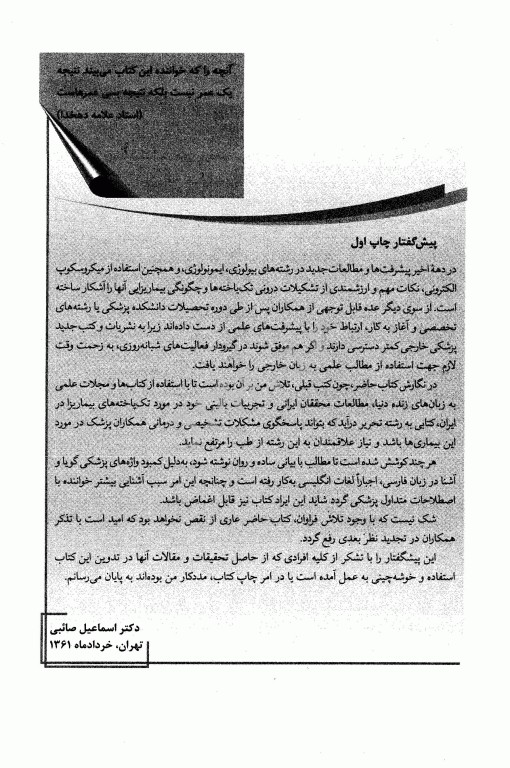 آنچه را که خواننده این کتاب می‌بیند نتیجه
یک عمر نیست بلکه نتیجه بسی عمرهاست
(استاد علامه دهخدا)
پیش‌گفتار چاپ اول
در دههٔ اخیر پیشرفت‌ها و مطالعات جدید در رشته‌های بیولوژی، ایمونولوژی، و همچنین استفاده از میکروسکوپ
الکترونی، نکات مهم و ارزشمندی از تشکیلات درونی تک‌یاخته‌ها و چگونگی بیماریزایی آنها را آشکار ساخته
است. از سوی دیگر عده قابل توجهی از همکاران پس از طی دوره تحصیلات دانشکده پزشکی یا رشته‌های
تخصصی و آغاز به کار، ارتباط خود را با پیشرفت‌های علمی از دست داده‌اند زیرا به نشریات و کتب جدید
پزشکی خارجی کمتر دسترسی دارند و اگر هم موفق شوند در گیرودار فعالیت‌های شبانه‌روزی، به زحمت وقت
لازم جهت استفاده از مطالب علمی به زبان خارجی را خواهند یافت.
در نگارش کتاب حاضر، چون کتب قبلی، تلاش من بر آن بوده است تا با استفاده از کتاب‌ها و مجلات علمی
به زبان‌های زنده دنیا، مطالعات محققان ایرانی و تجربیات بالینی خود در مورد تک‌یاخته‌های بیماریزا در
ایران، کتابی به رشته تحریر درآید که بتواند پاسخگوی مشکلات تشخیصی و درمانی همکاران پزشک در مورد
این بیماری‌ها باشد و نیاز علاقمندان به این رشته از طب را مرتفع نماید.
هر چند کوشش شده است تا مطالب با بیانی ساده و روان نوشته شود، به‌دلیل کمبود واژه‌های پزشکی گویا و
آشنا در زبان فارسی، اجباراً لغات انگلیسی به‌کار رفته است و چنانچه این امر سبب آشنایی بیشتر خواننده با
اصطلاحات متداول پزشکی گردد شاید این ایراد کتاب نیز قابل اغماض باشد.
شک نیست که با وجود تلاش فراوان، کتاب حاضر عاری از نقص نخواهد بود که امید است با تذکر
همکاران در تجدید نظر بعدی رفع گردد.
این پیشگفتار را با تشکر از کلیه افرادی که از حاصل تحقیقات و مقالات آنها در تدوین این کتاب
استفاده و خوشه‌چینی به عمل آمده است یا در امر چاپ کتاب، مددکار من بوده‌اند به پایان می‌رسانم.
دکتر اسماعیل صائبی
تهران، خردادماه ۱۳۶۱